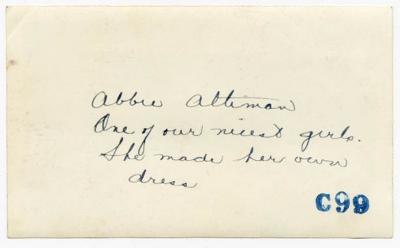 Abbie Altiman
One of our nicest girls.
She made her own
dress
C99